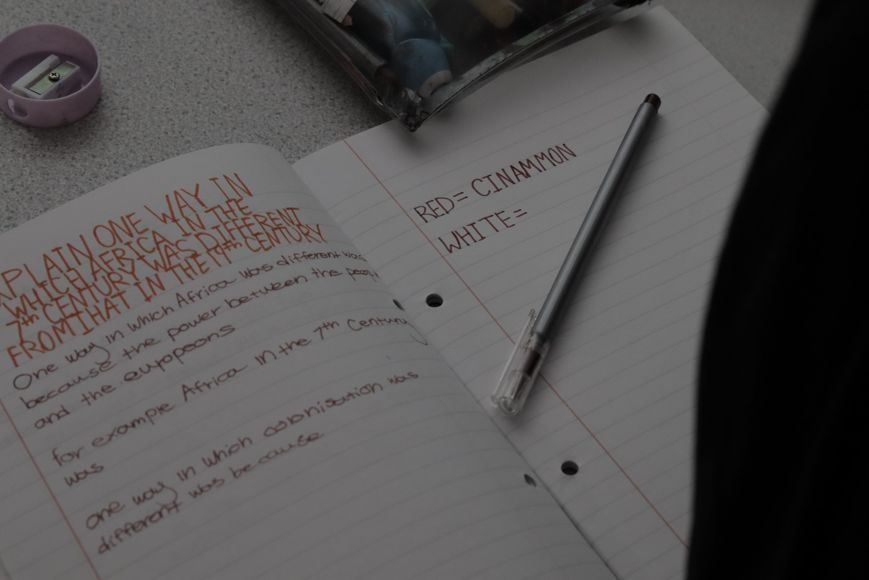 PLAIN ONE WAY IN
WHICH AFRICA IN THE
7th CENTURY WAS DIFFERENT
FROM THAT IN THE 19th CENTURY
One way in which Africa was different was
because the power between the people
and the europeans
for example Africa in the 7th Century
was
one way in which colonisation was
different was because
RED = CINAMMON
WHITE =